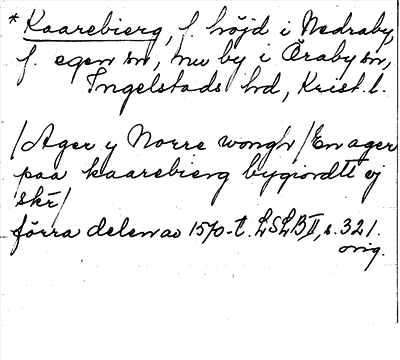 * Kaarebierg, f. höjd i Nedraby,
f. egen sn, nu by i Öraby sn,
Ingelstads hd, Krist. l.
/Ager y Norre wongh/En ager
paa kaarebierg bygiordtt ej
skr/
förra delen av 1570-t. LSLB II, s. 321.
orig.